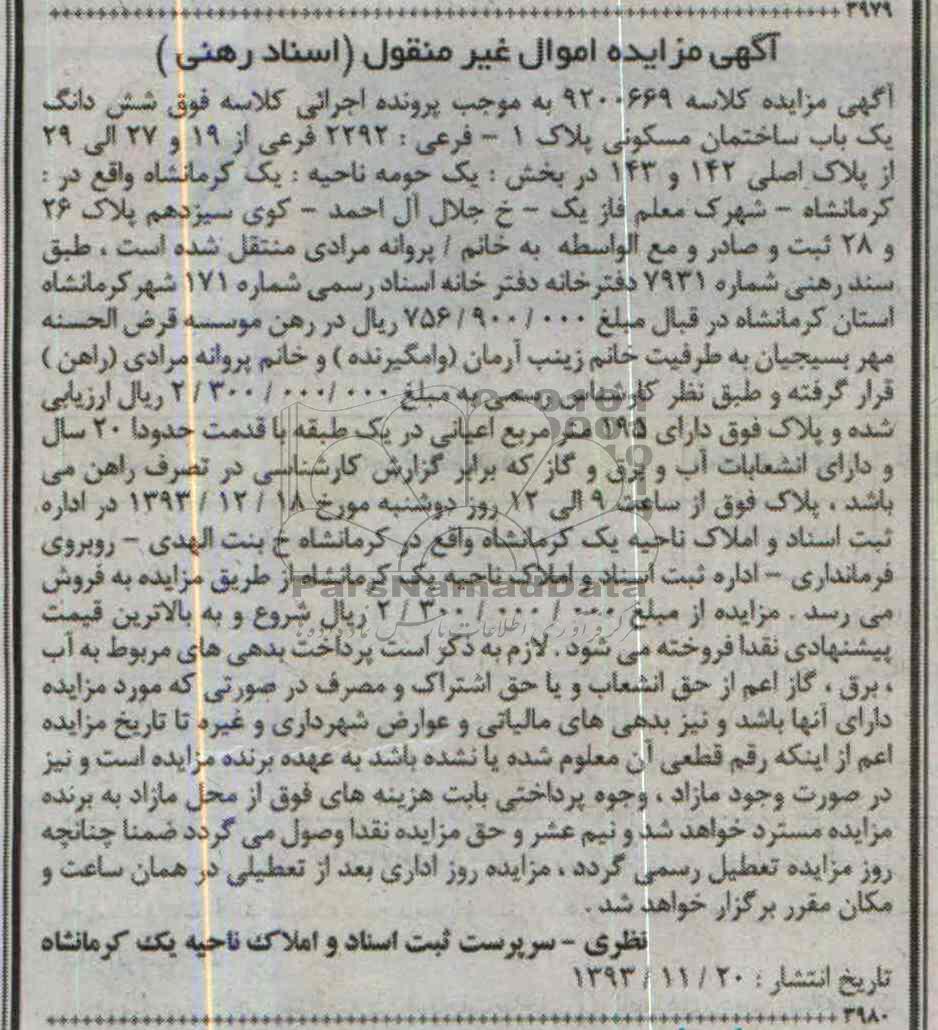 ۳۹۷۹
آگهی مزایده اموال غیر منقول (اسناد رهنی)
آگهی مزایده کلاسه ۹۲۰۰۶۶۹ به موجب پرونده اجرائی کلاسه فوق شش دانگ
یک باب ساختمان مسکونی پلاک ۱ - فرعی : ۲۲۹۲ فرعی از ۱۹ و ۲۷ الی ۲۹
از پلاک اصلی ۱۴۲ و ۱۴۳ در بخش : یک حومه ناحیه : یک کرمانشاه واقع در :
کرمانشاه - شهرک معلم فاز یک - خ جلال آل احمد - کوی سیزدهم پلاک ۲۶
و ۲۸ ثبت و صادر و مع الواسطه به خانم / پروانه مرادی منتقل شده است ، طبق
سند رهنی شماره ۷۹۳۱ دفترخانه دفتر خانه اسناد رسمی شماره ۱۷۱ شهر کرمانشاه
استان کرمانشاه در قبال مبلغ ۷۵۶/۹۰۰/۰۰۰ ریال در رهن موسسه قرض الحسنه
مهر بسیجیان به ظرفیت خانم زینب آرمان (وامگیرنده) و خانم پروانه مرادی (راهن)
قرار گرفته و طبق نظر کارشناس رسمی به مبلغ ۲/۳۰۰/۰۰۰/۰۰۰ ریال ارزیابی
شده و پلاک فوق دارای ۱۹۵ متر مربع اعیانی در یک طبقه با قدمت حدودا ۲۰ سال
و دارای انشعابات آب و برق و گاز که برابر گزارش کارشناسی در تصرف راهن می
باشد ، پلاک فوق از ساعت ۹ الی ۱۲ روز دوشنبه مورخ ۱۸ / ۱۲ / ۱۳۹۳ در اداره
ثبت اسناد و املاک ناحیه یک کرمانشاه واقع در کرمانشاه خ بنت الهدی - روبروی
فرمانداری - اداره ثبت اسناد و املاک ناحیه یک کرمانشاه از طریق مزایده به فروش
ParsNamadData
می رسد . مزایده از مبلغ ۲/۳۰۰/۰۰۰/۰۰۰ ریال شروع و به بالاترین قیمت
پیشنهادی نقدا فروخته می شود . لازم به ذکر است پرداخت بدهی های مربوط به آب
، برق ، گاز اعم از حق انشعاب و یا حق اشتراک و مصرف در صورتی که مورد مزایده
دارای آنها باشد و نیز بدهی های مالیاتی و عوارض شهرداری و غیره تا تاریخ مزایده
اعم از اینکه رقم قطعی آن معلوم شده یا نشده باشد به عهده برنده مزایده است و نیز
در صورت وجود مازاد ، وجوه پرداختی بابت هزینه های فوق از محل مازاد به برنده
مزایده مسترد خواهد شد و نیم عشر و حق مزایده نقدا وصول می گردد ضمنا چنانچه
روز مزایده تعطیل رسمی گردد ، مزایده روز اداری بعد از تعطیلی در همان ساعت و
مکان مقرر برگزار خواهد شد .
نظری - سرپرست ثبت اسناد و املاک ناحیه یک کرمانشاه
تاریخ انتشار : ۲۰ / ۱۱ / ۱۳۹۳
۳۹۸۰